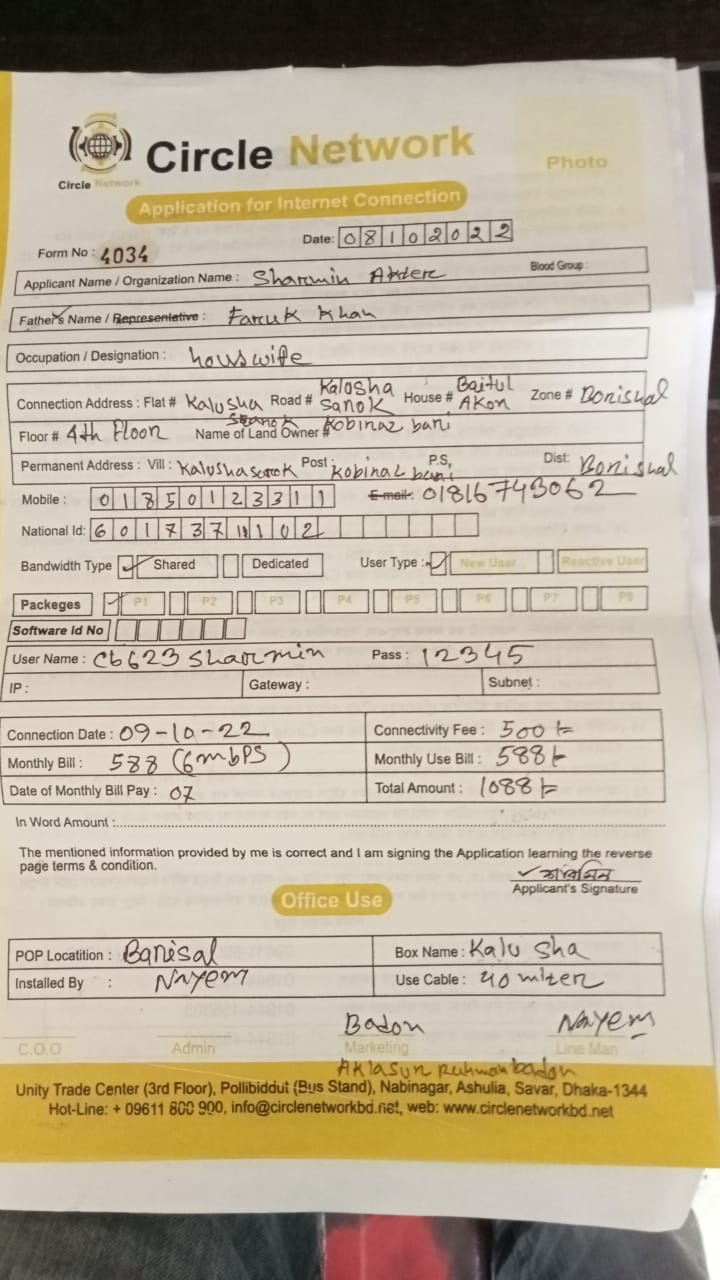 Circle Network
Circle Network
Photo
Application for Internet Connection
Date: 08102022
Form No : 4034
Applicant Name / Organization Name : Sharmin Akter Blood Group :
Father's Name / Representative : Faruk Khan
Occupation / Designation : houswife
Connection Address : Flat # Kalusha Road # Kalosha Sanok House # Baitul Akon Zone # Borishal
Floor # 4th Floor Name of Land Owner #
Permanent Address : Vill : Post : P.S, Dist: Borishal
Mobile : 01850123311 E-mail: 01816743062
National Id:
Bandwidth Type Shared Dedicated User Type : New User Reactive User
Packeges P1 P2 P3 P4 P5 P6 P7 P8
Software Id No
User Name : cb623 sharmin Pass : 12345
IP : Gateway : Subnet :
Connection Date : 09-10-22 Connectivity Fee : 500/=
Monthly Bill : 588 (6mbPS) Monthly Use Bill : 588/=
Date of Monthly Bill Pay : 07 Total Amount : 1088/=
In Word Amount :
The mentioned information provided by me is correct and I am signing the Application learning the reverse
page terms & condition.
Applicant's Signature
Office Use
POP Locatition : Barisal Box Name : Kalu sha
Installed By : Nayem Use Cable : 40
Badon Nayem
C.O.O Admin Marketing Line Man
Unity Trade Center (3rd Floor), Pollibiddut (Bus Stand), Nabinagar, Ashulia, Savar, Dhaka-1344
Hot-Line: + 09611 800 900, info@circlenetworkbd.net, web: www.circlenetworkbd.net